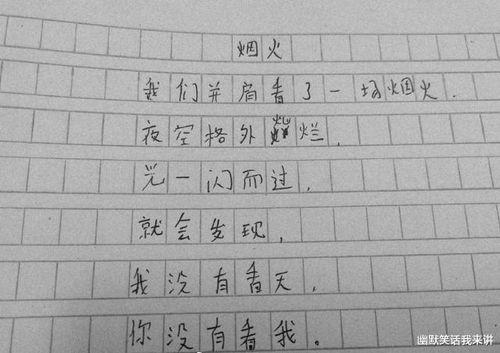 烟火
我们并肩看了一场烟火.
夜空格外灿烂.
光一闪而过,
就会发现,
我没有看天,
你没有看我。
幽默笑话我来讲